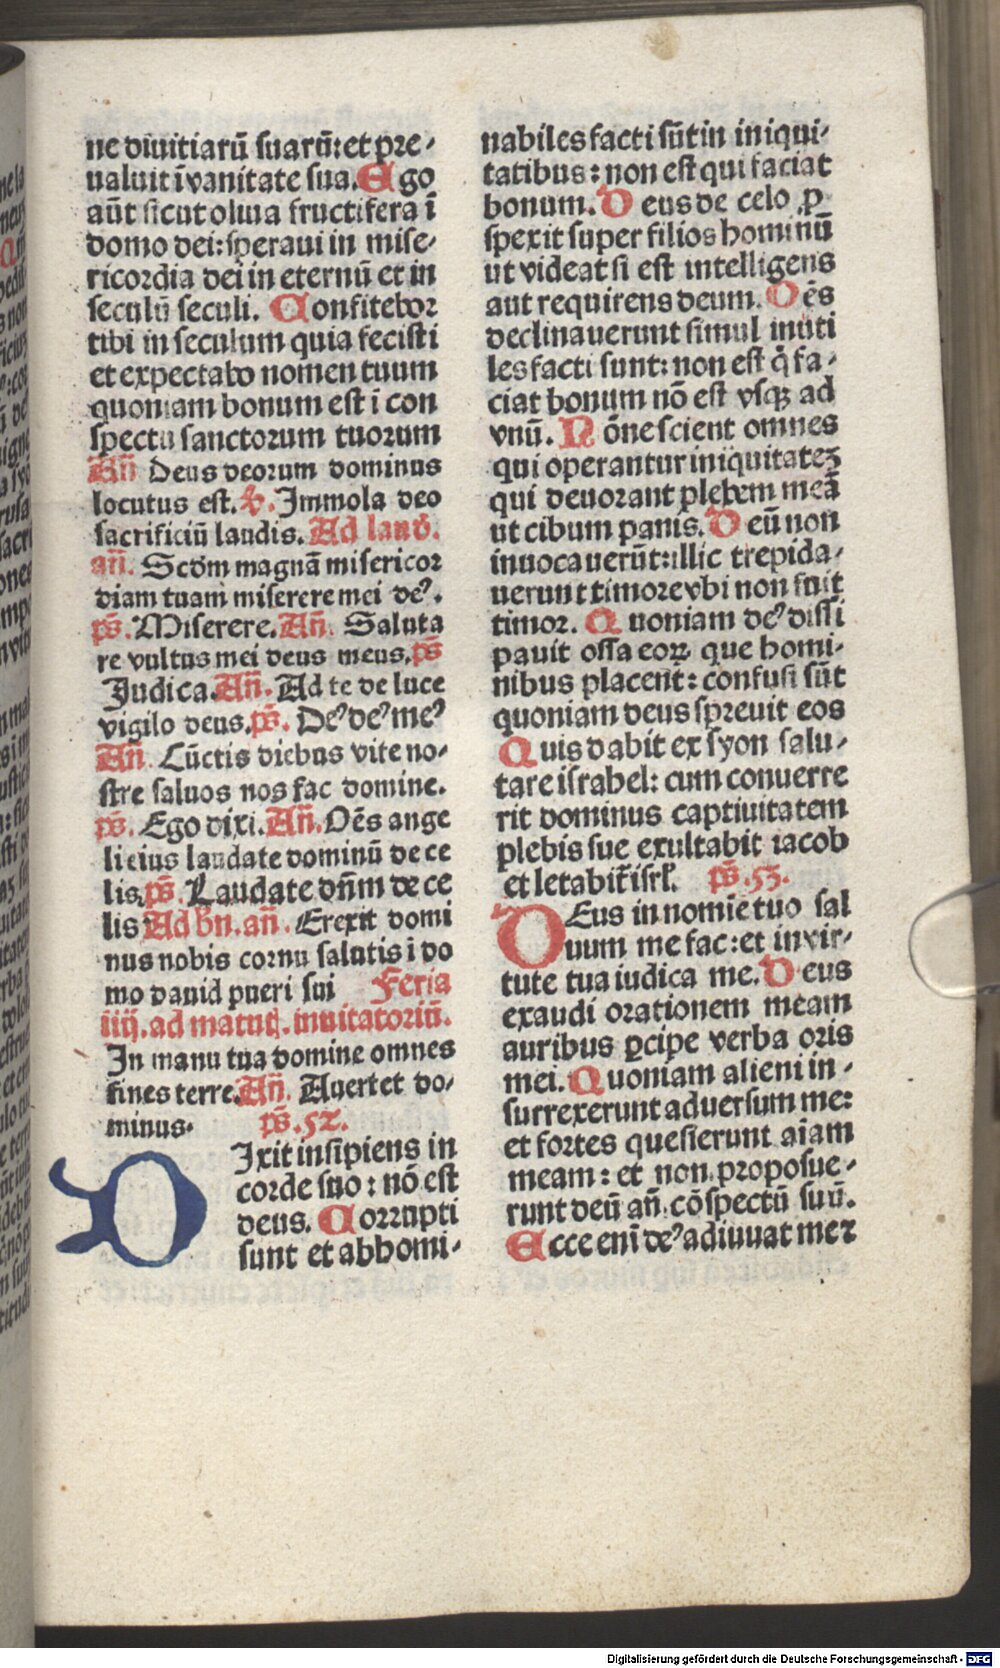 ne diuitiarū suarū: et pre-
ualuit ī vanitate sua. Ego
aūt sicut oliua fructifera ī
domo dei: speraui in mise-
ricordia dei in eternū et in
seculū seculi. Confitebor
tibi in seculum quia fecisti
et expectabo nomen tuum
quoniam bonum est i con
spectu sanctorum tuorum
Añ Deus deorum dominus
locutus est. ꝟ. Immola deo
sacrificiū laudis. Ad laud.
añ. Scdm magnā misericor
diam tuam miserere mei deꝰ.
ps. Miserere. Añ. Saluta
re vultus mei deus meus. ps
Iudica. Añ. Ad te de luce
vigilo deus. ps. Deꝰ deꝰ meꝰ
Añ. Cūctis diebus vite no-
stre saluos nos fac domine.
ps. Ego dixi. Añ. Oēs ange
li eius laudate dominū de ce
lis. ps. Laudate dñm de ce
lis Ad bñ. añ. Erexit domi
nus nobis cornu salutis i do
mo dauid pueri sui Feria
iiij. ad matuꝭ. inuitatoriū.
In manu tua domine omnes
fines terre. Añ. Auertet do-
minus. ps. 52.
DIxit insipiens in
corde suo: nō est
deus. Corrupti
sunt et abbomi-
nabiles facti sūt in iniqui-
tatibus: non est qui faciat
bonum. Deus de celo ꝓ
spexit super filios hominū
ut videat si est intelligens
aut requirens deum. Oēs
declinauerunt simul inuti
les facti sunt: non est q̇ fa-
ciat bonum nō est vsqꝫ ad
vnū. Nōne scient omnes
qui operantur iniquitateꝫ
qui deuorant plebem meā
ut cibum panis. Deū non
inuocauerūt: illic trepida-
uerunt timore vbi non fuit
timor. Quoniam deꝰ dissi
pauit ossa eoꝝ que homi-
nibus placent: confusi sūt
quoniam deus spreuit eos
Quis dabit ex syon salu-
tare israhel: cum conuerre
rit dominus captiuitatem
plebis sue exultabit iacob
et letabit̄ isrl̄. ps. 53.
DEus in nomīe tuo sal
uum me fac: et in vir-
tute tua iudica me. Deus
exaudi orationem meam
auribus ꝑcipe verba oris
mei. Quoniam alieni in-
surrexerunt aduersum me:
et fortes quesierunt aīam
meam: et non proposue-
runt deū añ. cōspectū suū.
Ecce enī deꝰ adiuuat me ⁊
Digitalisierung gefördert durch die Deutsche Forschungsgemeinschaft - DFG